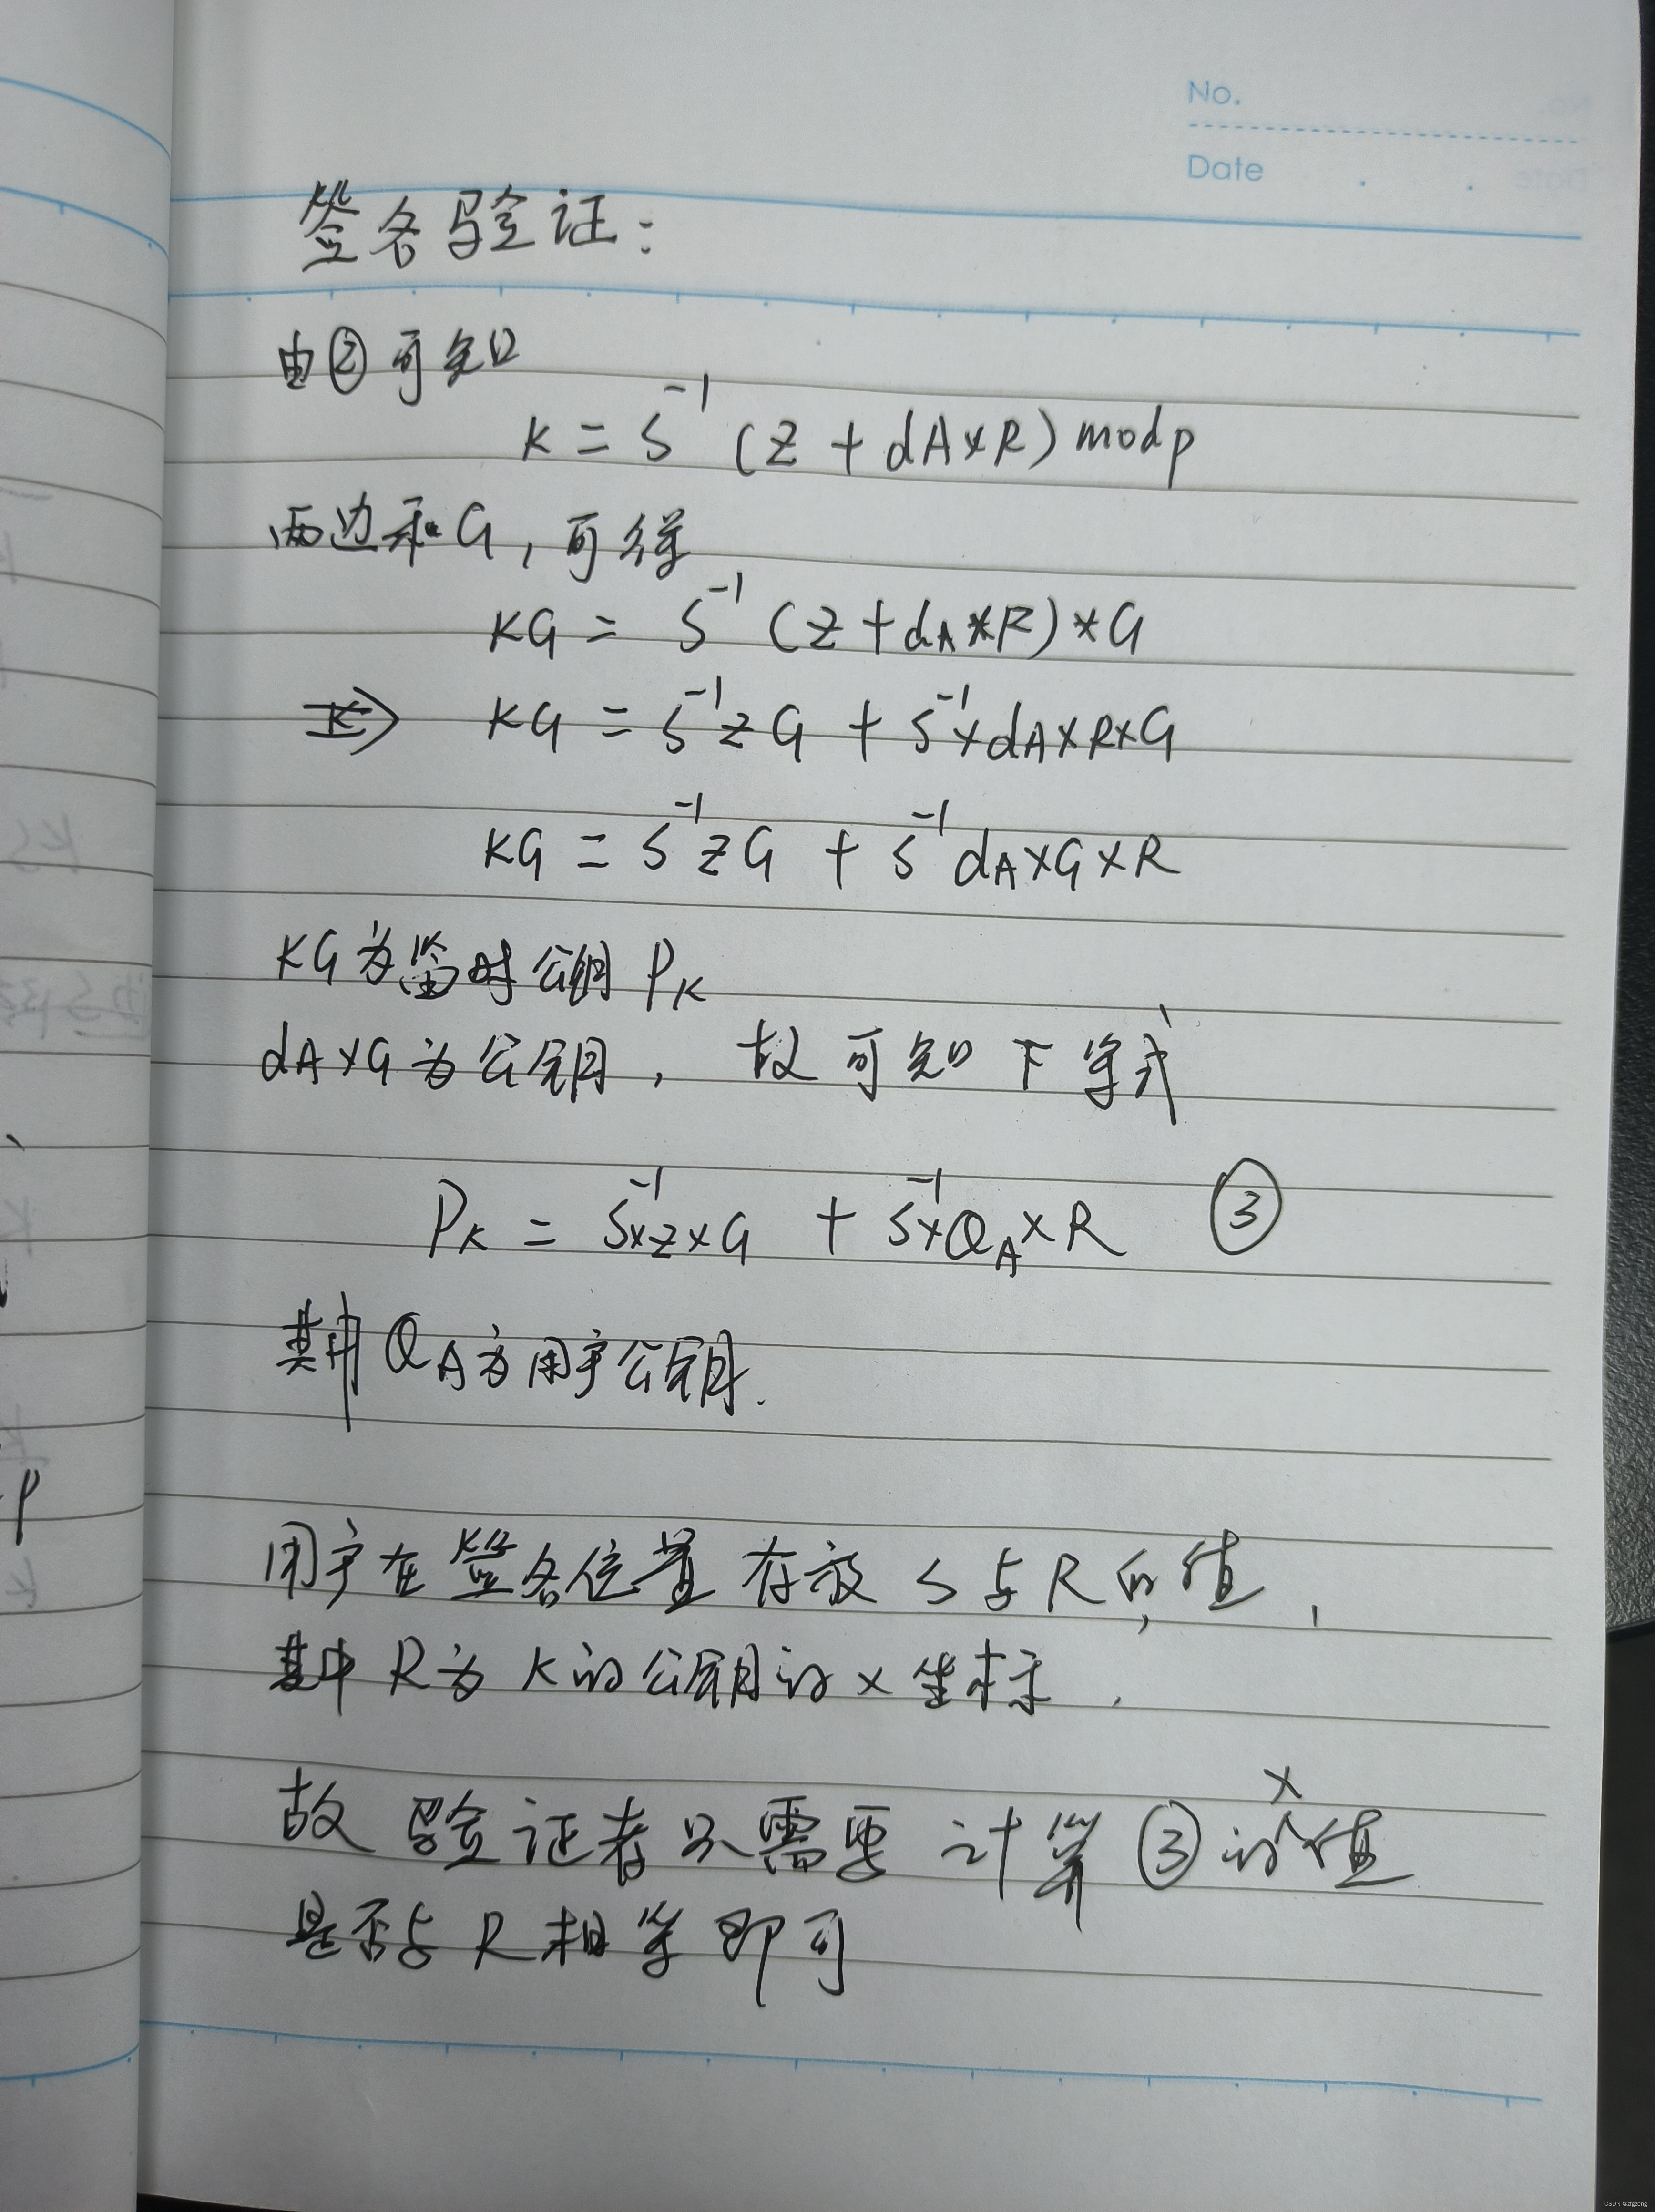 No.
Date
签名验证:
由②可知
K = S⁻¹ (Z + dA×R) mod p
两边乘G,可得
KG = S⁻¹ (Z + dA*R)*G
⇒ KG = S⁻¹ZG + S⁻¹×dA×R×G
KG = S⁻¹ZG + S⁻¹dA×G×R
KG为临时公钥 PK
dA×G为公钥, 故可知下等式
PK = S⁻¹×Z×G + S⁻¹×QA×R ③
其中QA为用户公钥.
用户在签名位置存放S与R的值,
其中R为K的公钥的x坐标,
故验证者只需要计算③的x值
是否与R相等即可
CSDN @zfgzeng